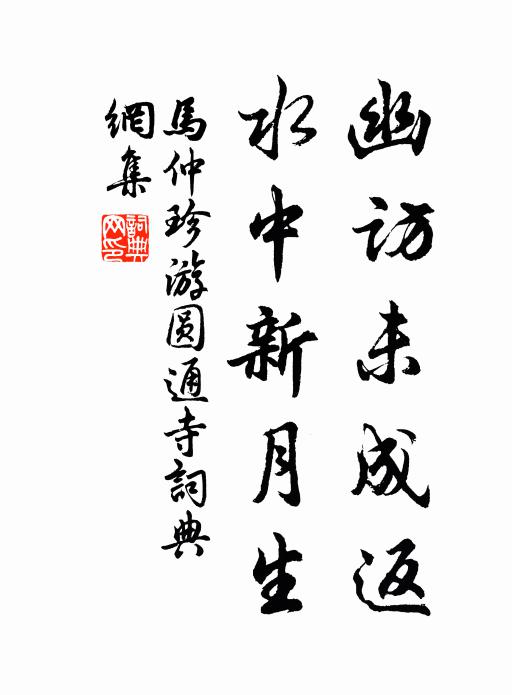 幽访未成返
水中新月生
馬仲珍游圆通寺詞典
網集
詞典
网印